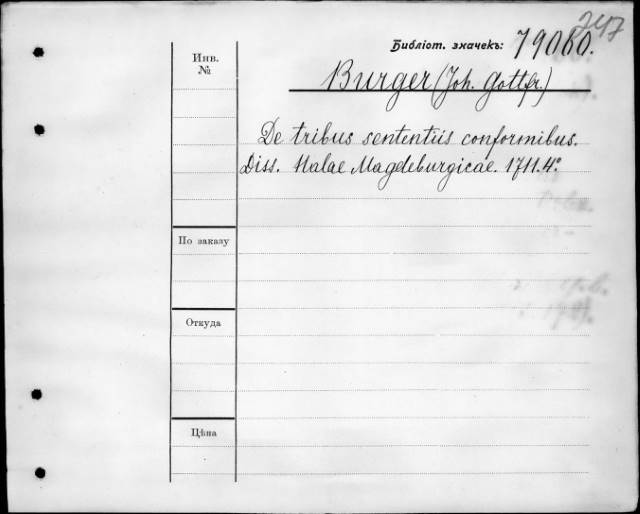 247
Библіот. значекъ: 79060.
Инв.
№
Burger (Joh. Gottfr.)
De tribus sententiis conformibus.
Diss. Halae Magdeburgicae. 1711. 4°
По заказу
Откуда
Цѣна